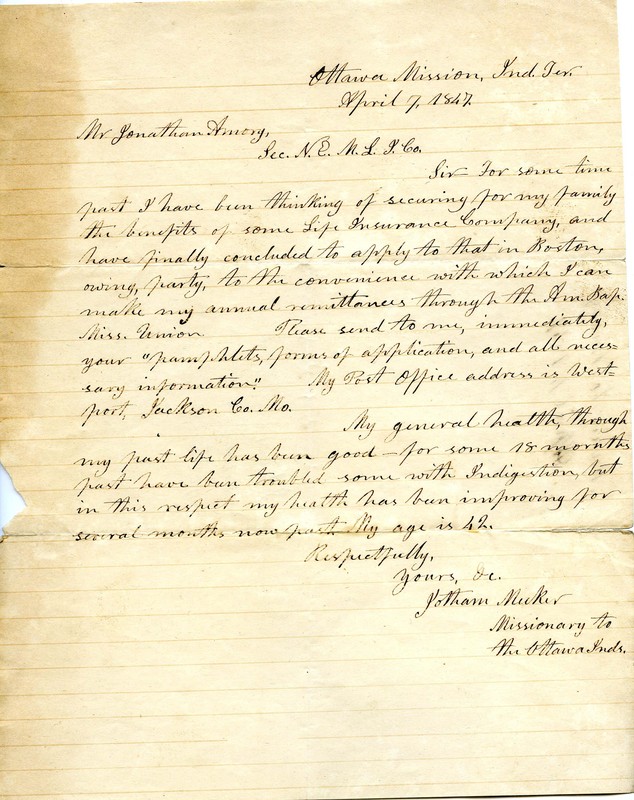 Ottawa Mission, Ind. Ter.
April 7, 1847.
Mr Jonathan Amory,
Sec. N.E. M. L. I. Co.
Sir For some time
past I have been thinking of securing for my family
the benefits of some Life Insurance Company, and
have finally concluded to apply to that in Boston,
owing, party, to the convenience with which I can
make my annual remittances through the Am. Bap.
Miss. Union Please send to me, immediately,
your "pamphlets, forms of application, and all neces=
sary information." My Post Office address is West=
port, Jackson Co. Mo.
My general health, through
my past life has been good – for some 18 months
past have been troubled some with Indigestion, but
in this respect my health has been improving for
several months now past. My age is 42.
Respectfully,
Yours, &c.
Jotham Meeker
Missionary to
the Ottawa Inds.